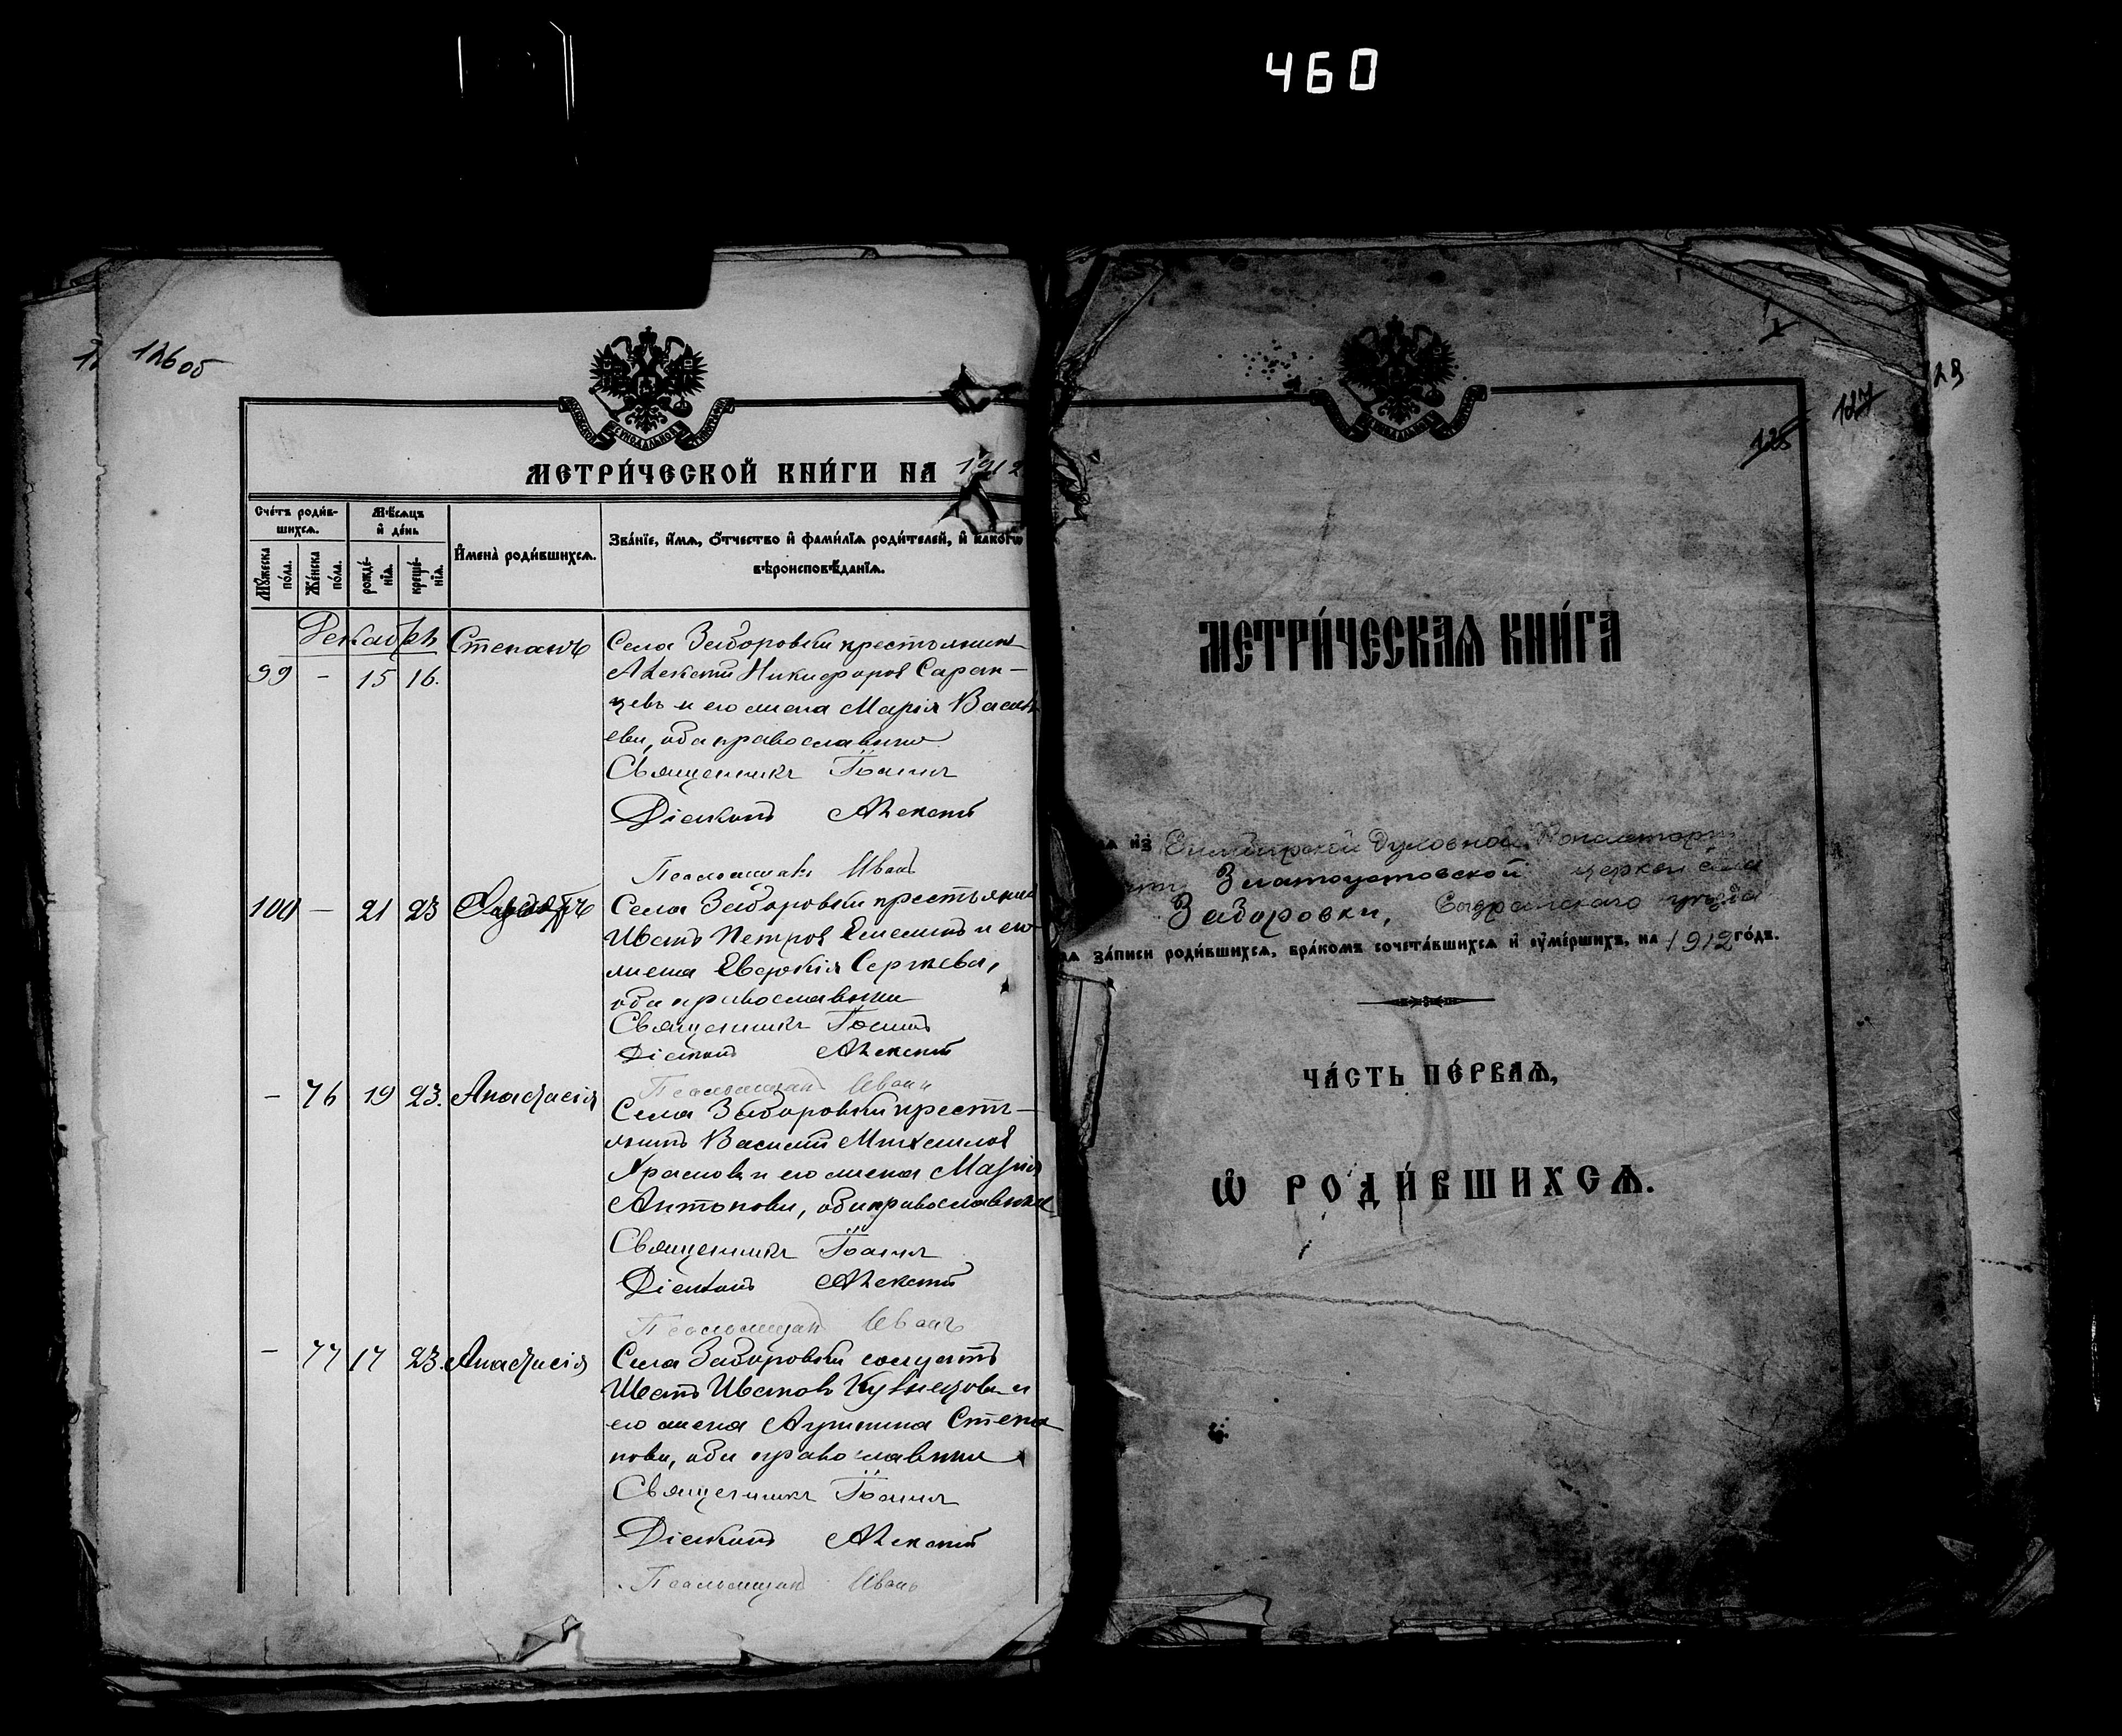 460
126 об
МЕТРИ́ЧЕСКОЙ КНИ́ГИ НА 1912
Сче́тъ роди́в-
шихсѧ.
Мѣ́сѧцъ
и҆ де́нь
И҆мена̀ роди́вшихсѧ.
Зва́нїе, и҆́мѧ, ѻ҆́тчество и҆ фами́лїѧ роди́телей, и҆ како́гѡ
вѣроисповѣ́данїѧ.
Мꙋ́жеска
по́ла.
Же́нска
по́ла.
рожде́-
нїѧ.
креще́-
нїѧ.
Декабрь
99 - 15 16. Степанъ
Села Заборовки крестьянинъ
Алексѣй Никифоровъ Саран-
цевъ и его жена Марія Василь
ева, оба православные
Священникъ Іоаннъ
Діаконъ Алексѣй
Псаломщикъ Иванъ
100 - 21 23
Села Заборовки крестьянинъ
Иванъ Петровъ Емелинъ и его
жена Евдокія Сергѣева,
оба православные
Священникъ Іоаннъ
Діаконъ Алексѣй
Псаломщикъ Иванъ
- 76 19 23. Анастасія
Села Заборовки кресть-
янинъ Василій Михайловъ
и его жена Марія
Антонова, оба православные
Священникъ Іоаннъ
Діаконъ Алексѣй
Псаломщикъ Иванъ
- 77 17 23. Анастасія
Села Заборовки солдатъ
Иванъ Ивановъ Кузнецовъ и
его жена Степа
нова, оба православные
Священникъ Іоаннъ
Діаконъ Алексѣй
Псаломщикъ Иванъ
128
127
125
МЕТРИ́ЧЕСКАѦ КНИ́ГА
из̾ Симбирской Духовной Консисторіи
Златоустовской церкви села
Заборовки, Сызранскаго уѣзда
за́писи роди́вшихсѧ, бра́комъ сочета́вшихсѧ и҆ ᲂу҆ме́ршихъ, на 1912 го́дъ.
ЧА́СТЬ ПЕ́РВАѦ,
Ѡ҆ РОДИ́ВШИХСѦ.